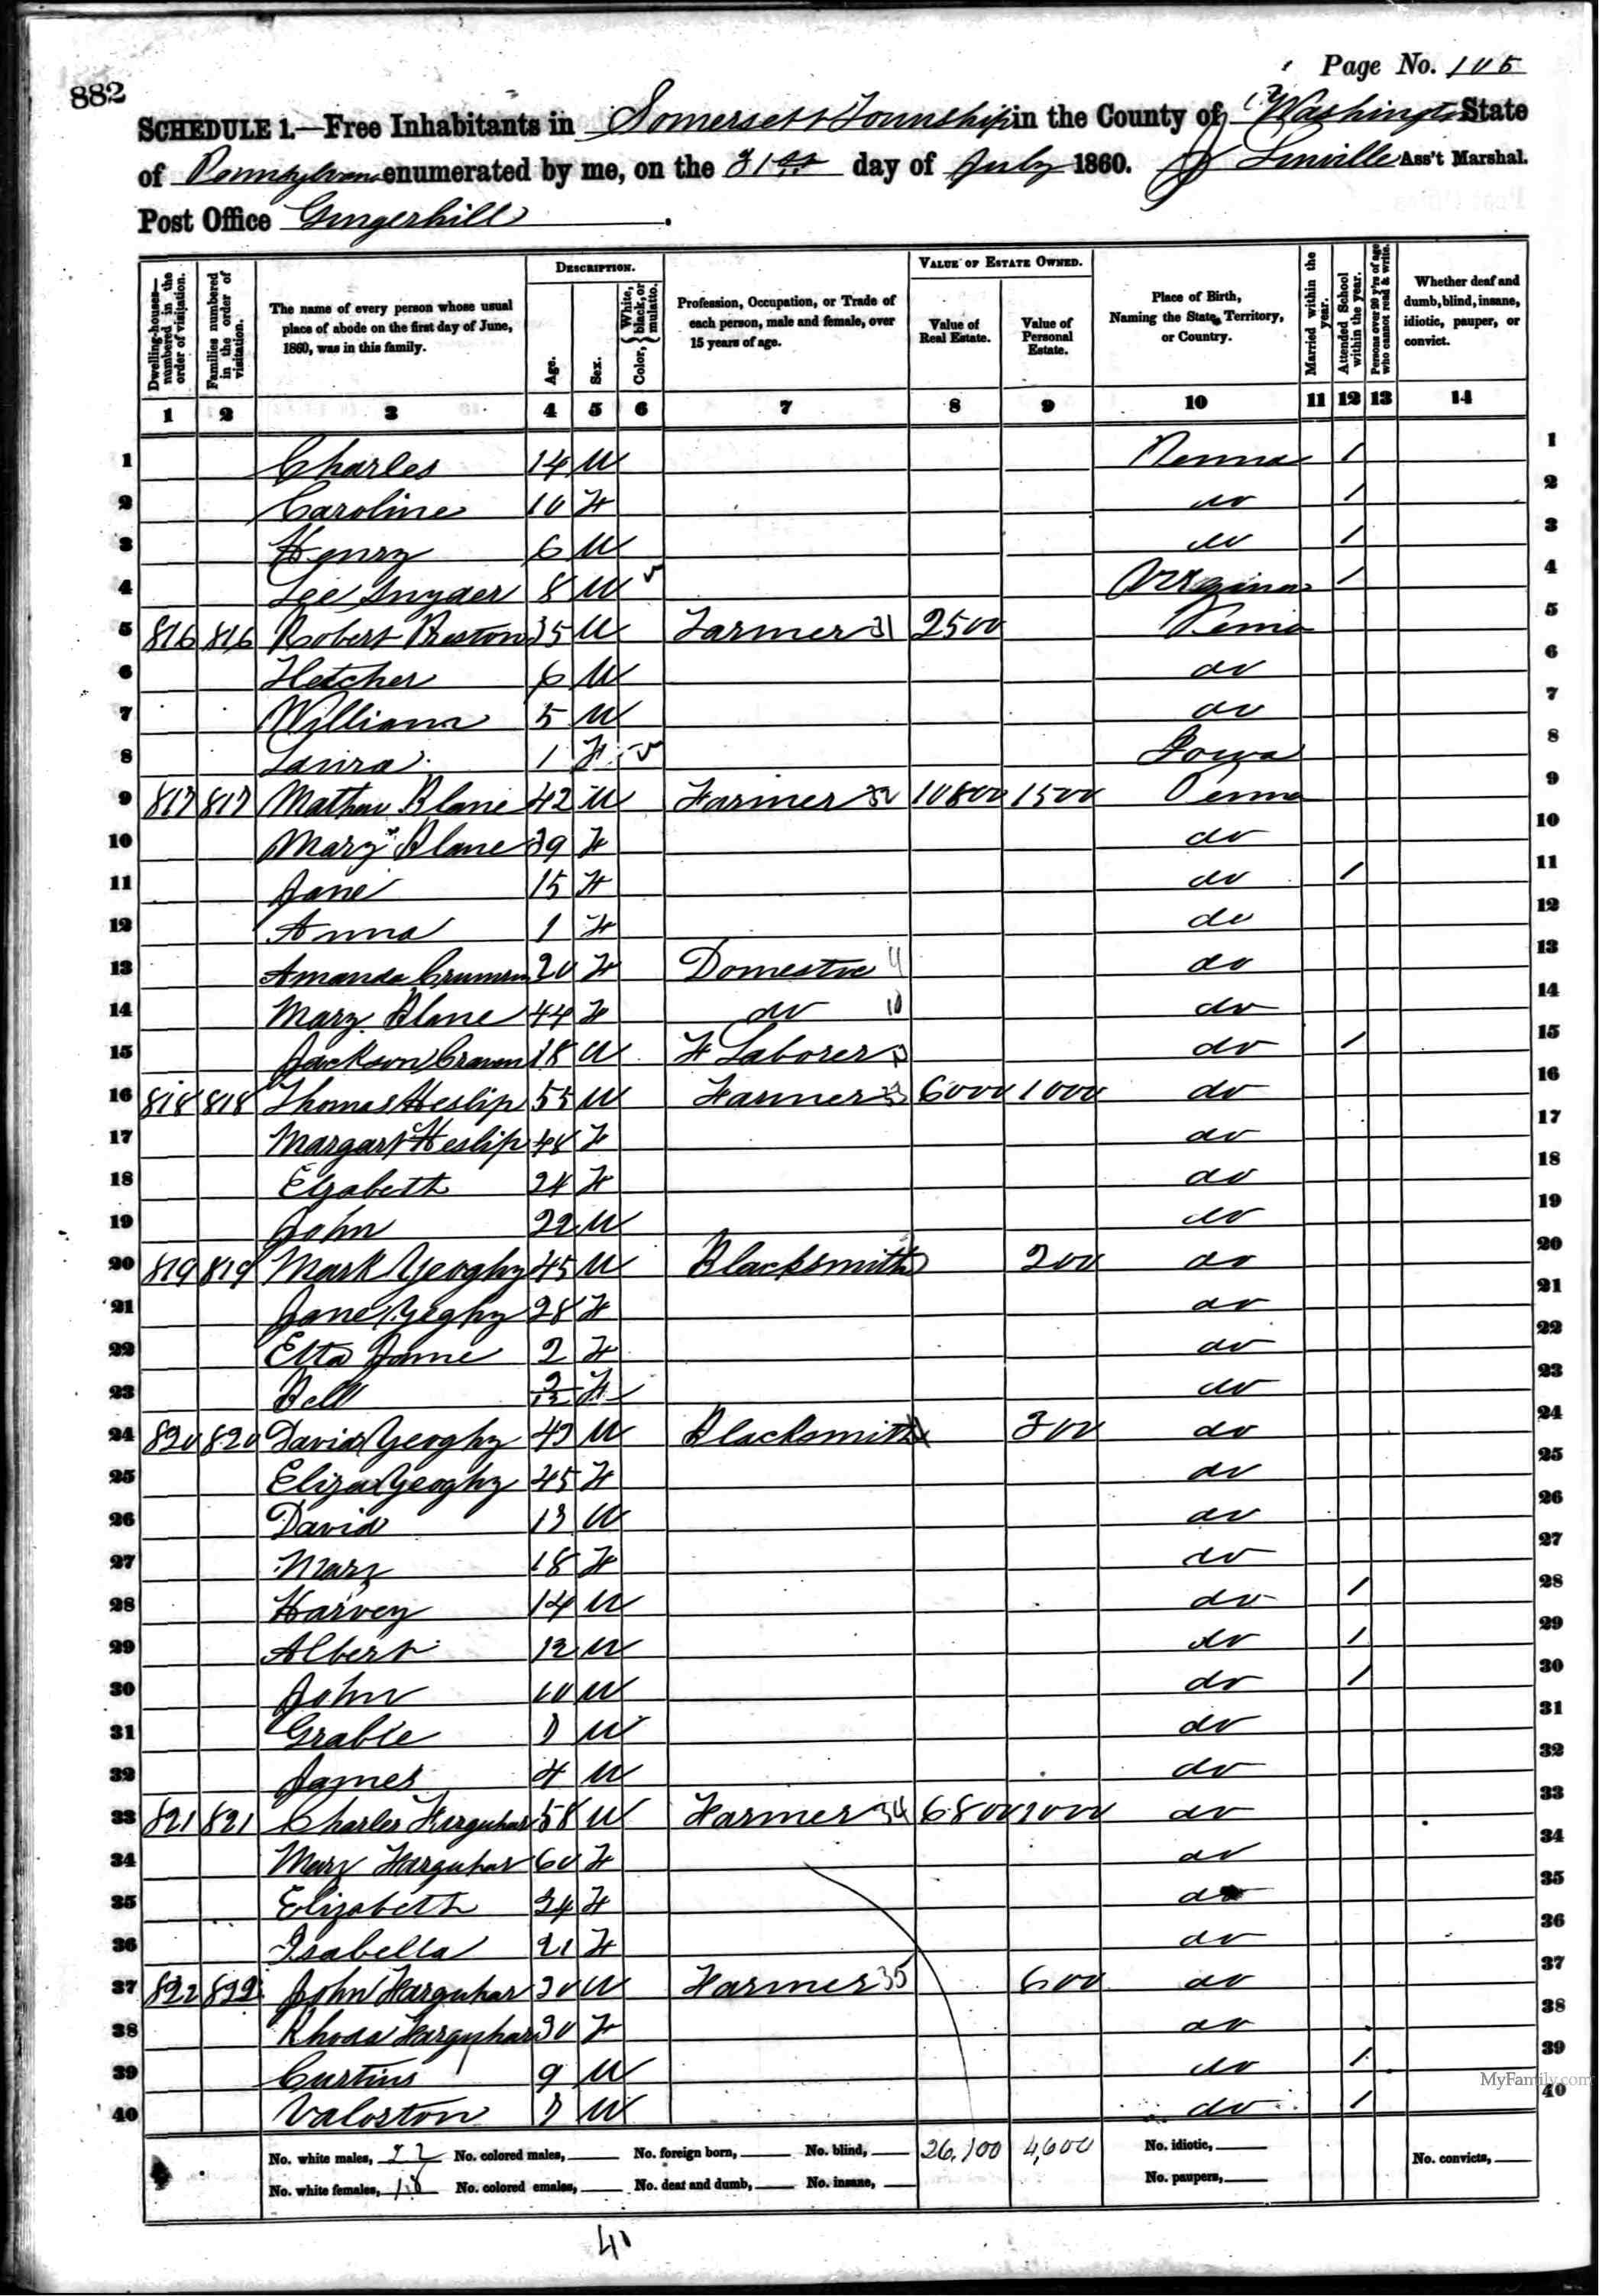 Page No. 105
882
SCHEDULE 1.—Free Inhabitants in Somersett Township in the County of Washington State
of Pennsylvania enumerated by me, on the 31st day of July 1860. Linville Ass't Marshal.
Post Office Gingerhill.
Dwelling-houses—numbered in the order of visitation.
Families numbered in the order of visitation.
The name of every person whose usual place of abode on the first day of June, 1860, was in this family.
DESCRIPTION.
Age.
Sex.
Color, { White, black, or mulatto.
Profession, Occupation, or Trade of each person, male and female, over 15 years of age.
VALUE OF ESTATE OWNED.
Value of Real Estate.
Value of Personal Estate.
Place of Birth, Naming the State, Territory, or Country.
Married within the year.
Attended School within the year.
Persons over 20 y'rs of age who cannot read & write.
Whether deaf and dumb, blind, insane, idiotic, pauper, or convict.
1 2 3 4 5 6 7 8 9 10 11 12 13 14
1 Charles 14 M Penna / 1
2 Caroline 10 F do / 2
3 Henry 6 M do / 3
4 Lee Snyder 8 M Virginia / 4
5 816 816 Robert Preston 35 M Farmer 31 2500 Penna 5
6 Fletcher 6 M do 6
7 William 5 M do 7
8 Laura 1 F Iowa 8
9 817 817 Mathew Blane 42 M Farmer 32 10800 1500 Penna 9
10 Mary Blane 39 F do 10
11 Jane 15 F do / 11
12 Anna 1 F do 12
13 Amanda 20 F Domestic do 13
14 Mary Blane 44 F do 10 do 14
15 Jackson 18 M F Laborer do / 15
16 818 818 Thomas Heslip 55 M Farmer 33 6000 1000 do 16
17 Margart Heslip 48 F do 17
18 Elzabeth 24 F do 18
19 John 22 M do 19
20 819 819 Mark Yeoghy 45 M Blacksmith 200 do 20
21 Jane Yeghy 28 F do 21
22 Etta Jane 2 F do 22
23 Bell 2/12 F do 23
24 820 820 David Yeoghy 49 M Blacksmith 300 do 24
25 Eliza Yeoghy 45 F do 25
26 David 19 M do 26
27 Mary 18 F do 27
28 Harvey 14 M do / 28
29 Albert 12 M do / 29
30 John 10 M do / 30
31 Grable 7 M do 31
32 James 4 M do 32
33 821 821 Charles Farquhar 58 M Farmer 34 6800 1000 do 33
34 Mary Farquhar 60 F do 34
35 Elizabeth 24 F do 35
36 Isabella 21 F do 36
37 822 822 John Farquhar 30 M Farmer 35 600 do 37
38 Rhoda Farquhar 30 F do 38
39 Curtius 9 M do / 39
40 Valorton 7 M do / 40
MyFamily.com
No. white males, 22 No. colored males, No. foreign born, No. blind, 26,100 4,600 No. idiotic, No. convicts,
No. white females, 18 No. colored emales, No. deaf and dumb, No. insane, No. paupers,
40